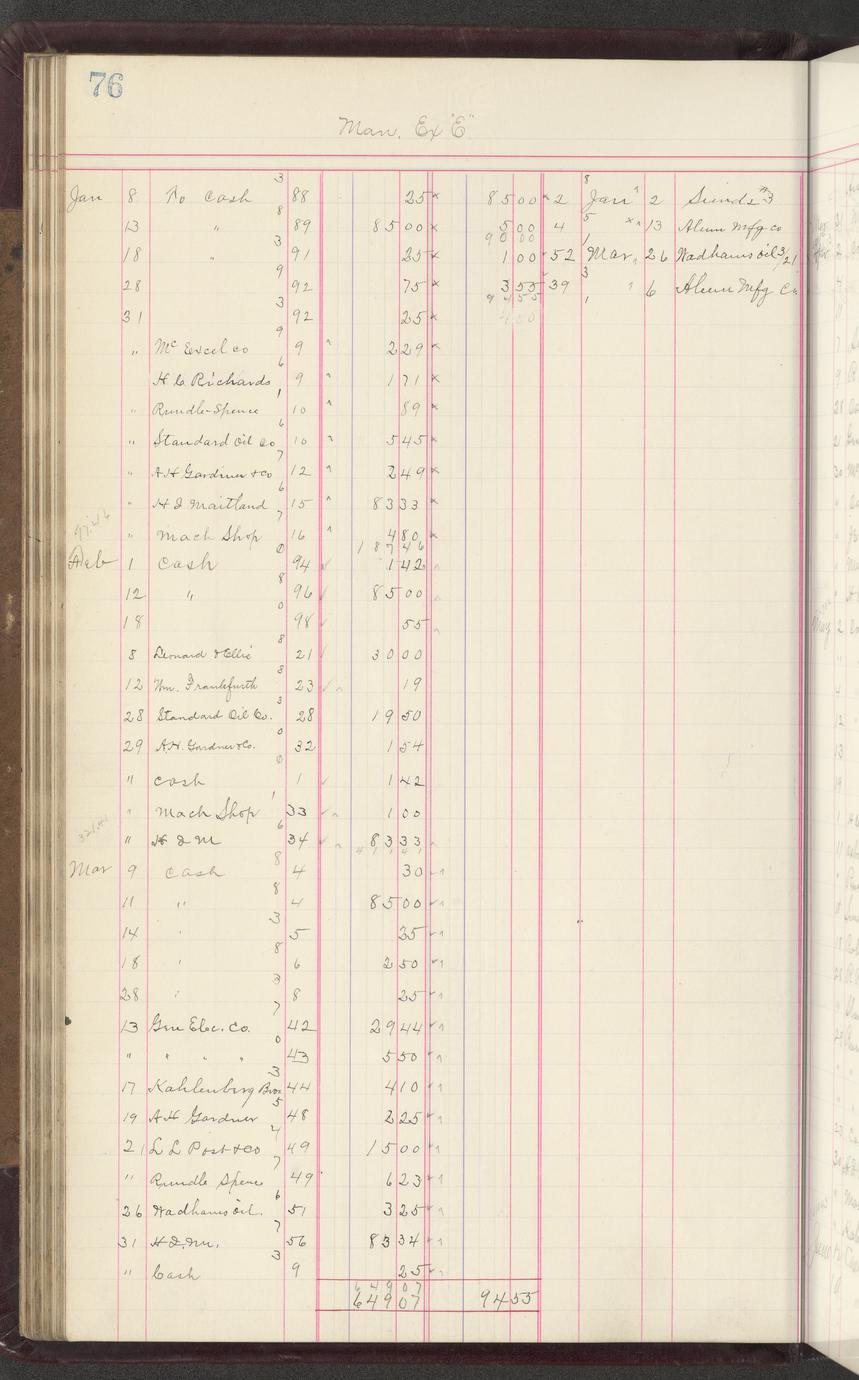 76
Man. Ex "E"
Jan 8 To Cash 3 88 25 8500 2 8 Jan 2 Sunds #3
13 " 8 89 8500 500 4 5 " 13 Alum Mfg Co
9000
18 " 3 91 25 100 52 1 Mar 26 Wadhams Oil 3/21
28 9 92 75 355 39 3 " 6 Alum Mfg Co.
9455 1
31 3 92 25 400
" Mc Excel Co 9 9 229
H C Richards 6 9 171
" Rundle-Spence 1 10 89
" Standard Oil Co 6 10 545
" A H Gardner & Co 7 12 249
" H D Maitland 6 15 8333
" Mach Shop 7 16 480
18746
Feb 1 Cash 0 94 142
12 " 8 96 8500
18 0 98 55
8 Leonard & Ellis 8 21 3000
12 Wm. Frankfurth 8 23 19
28 Standard Oil Co. 3 28 1950
29 A.H. Gardner & Co. 0 32 154
" Cash 0 1 142
" Mach Shop 1 33 100
" H D M 6 34 8333
Mar 9 Cash 8 4 30
11 " 8 4 8500
14 " 3 5 25
18 " 8 6 250
28 " 3 8 25
13 Gen Elec. Co. 7 42 2944
" " " " 0 43 550
17 Kahlenberg Bros 3 44 410
19 A H Gardner 5 48 225
21 L L Post & Co 4 49 1500
" Rundle Spence 7 49 623
26 Wadhams Oil. 6 51 325
31 H.D.M. 7 56 8334
" Cash 3 9 25
64907
64907 9455